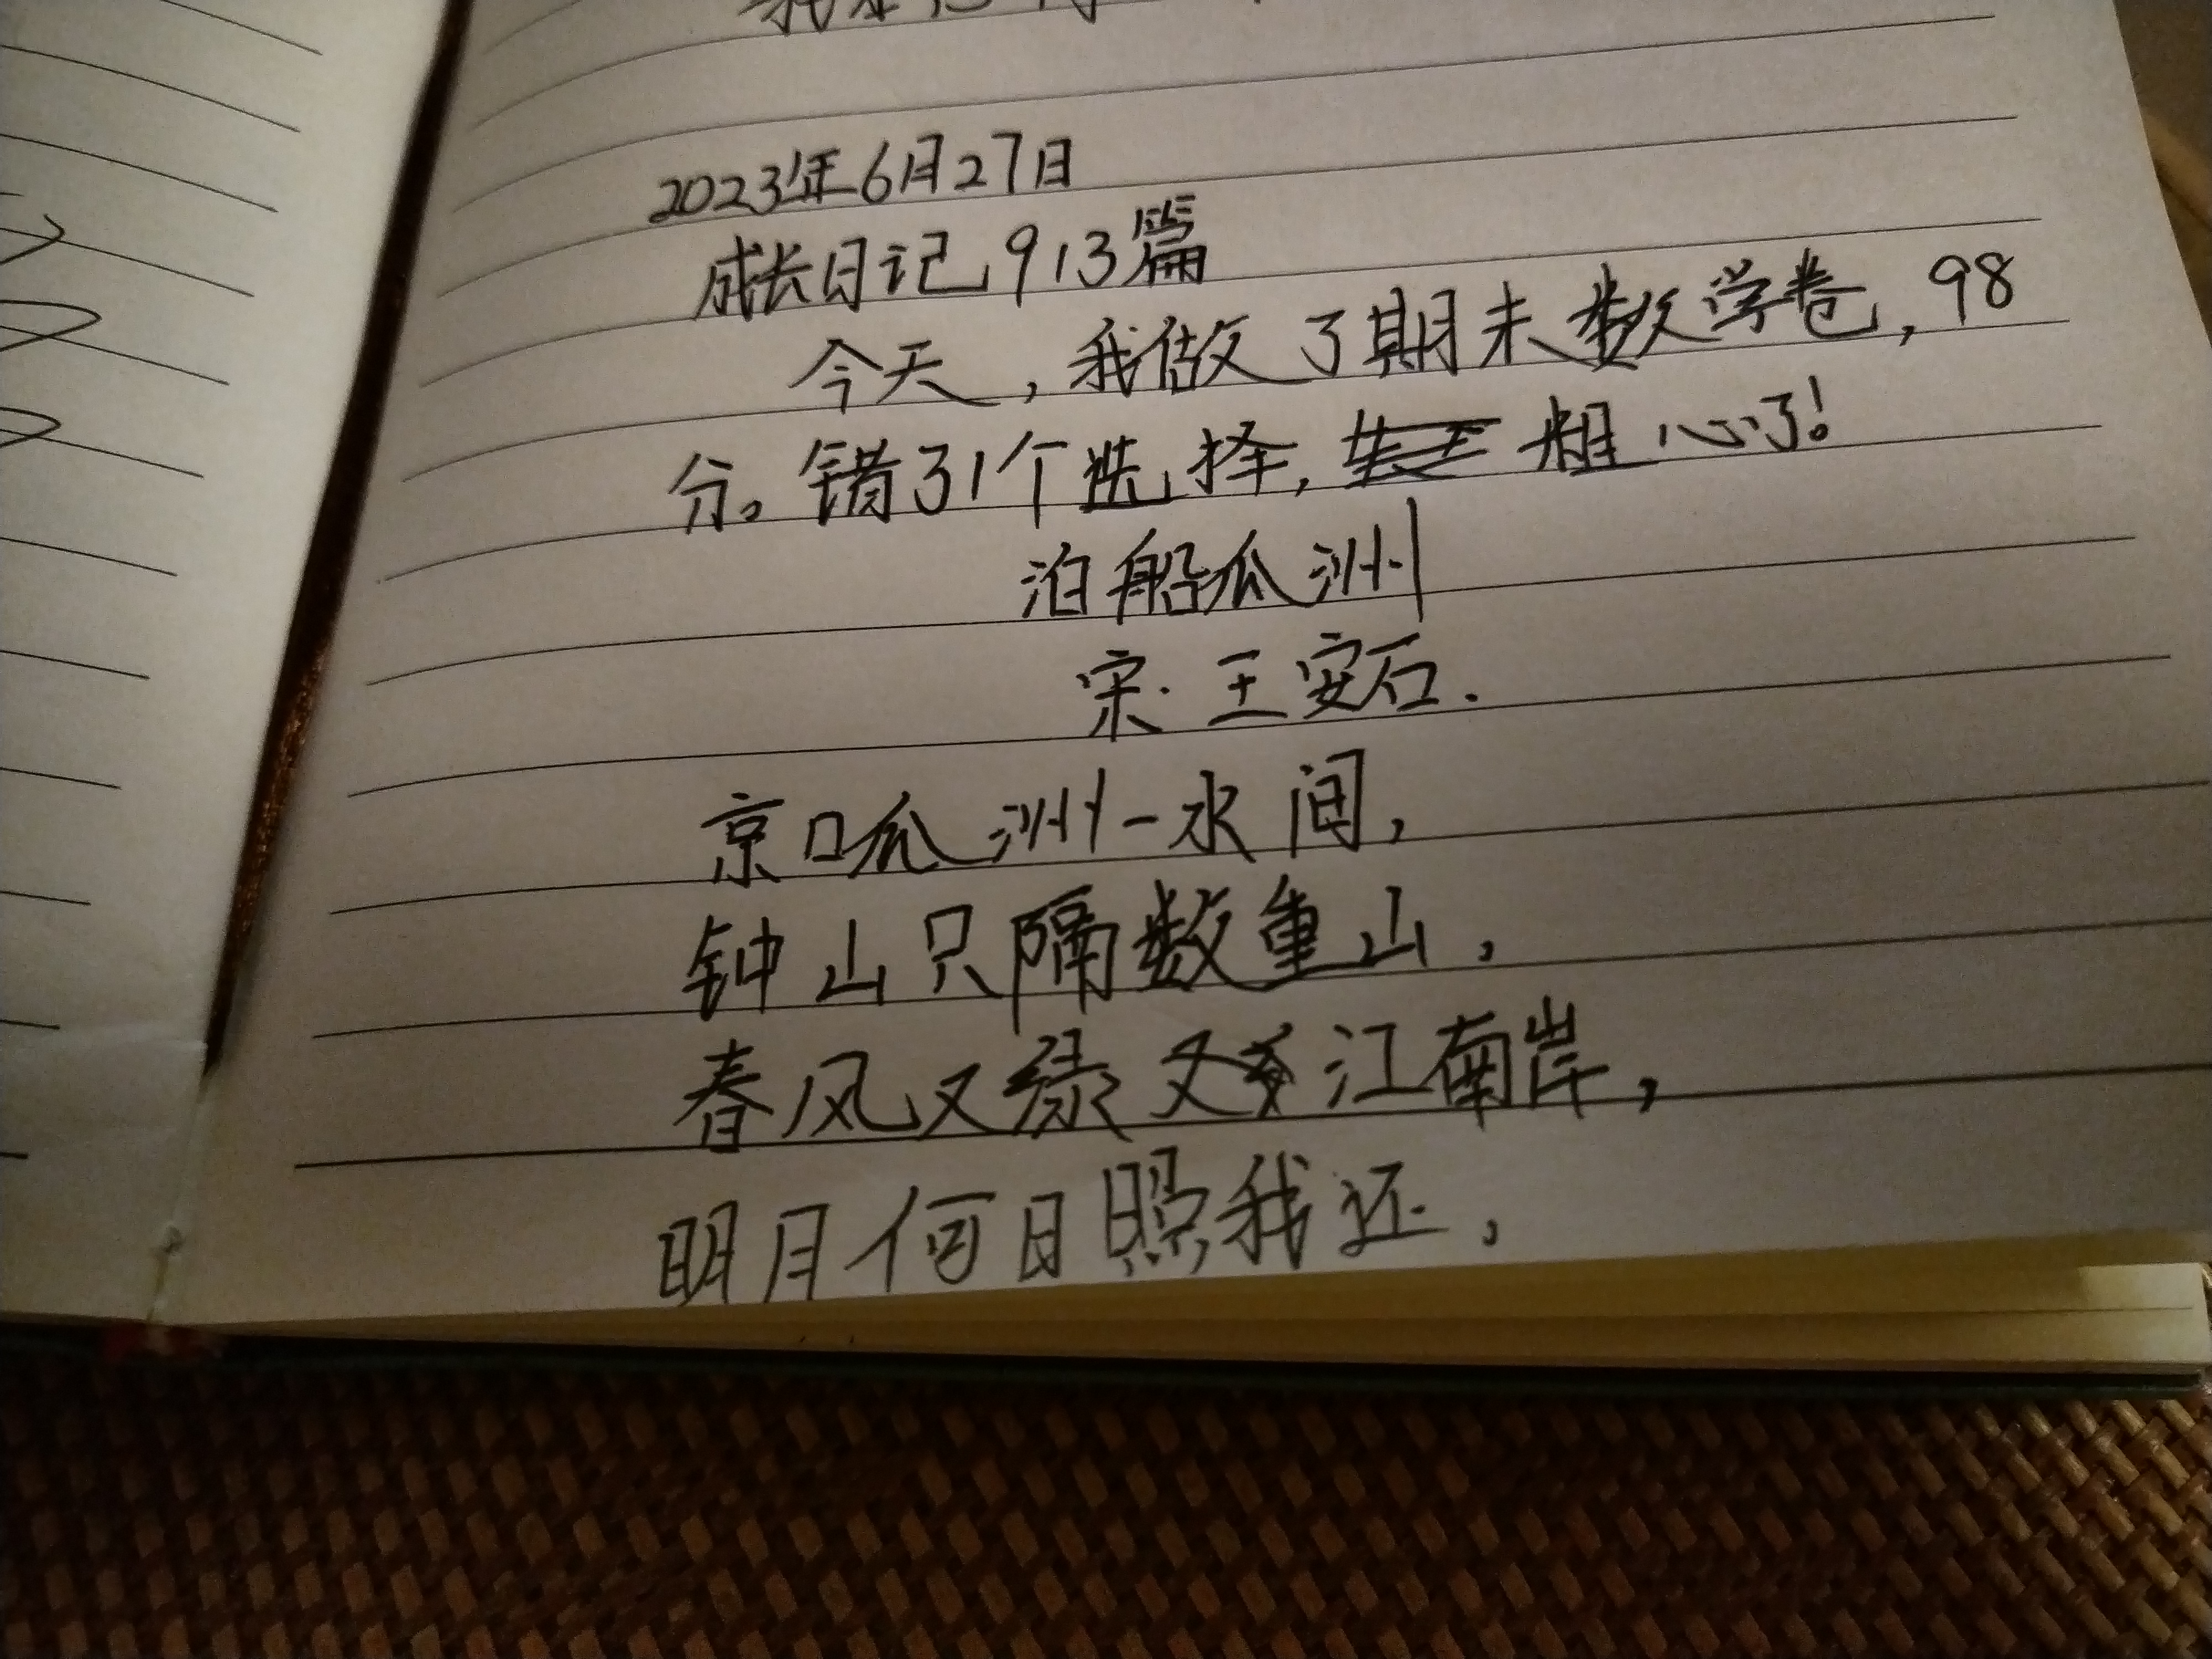 2023年6月27日
成长日记913篇
今天,我做了期末数学卷,98
分。错了1个选择,粗心了!
泊船瓜洲
宋·王安石.
京口瓜洲一水间,
钟山只隔数重山,
春风又绿又江南岸,
明月何日照我还,